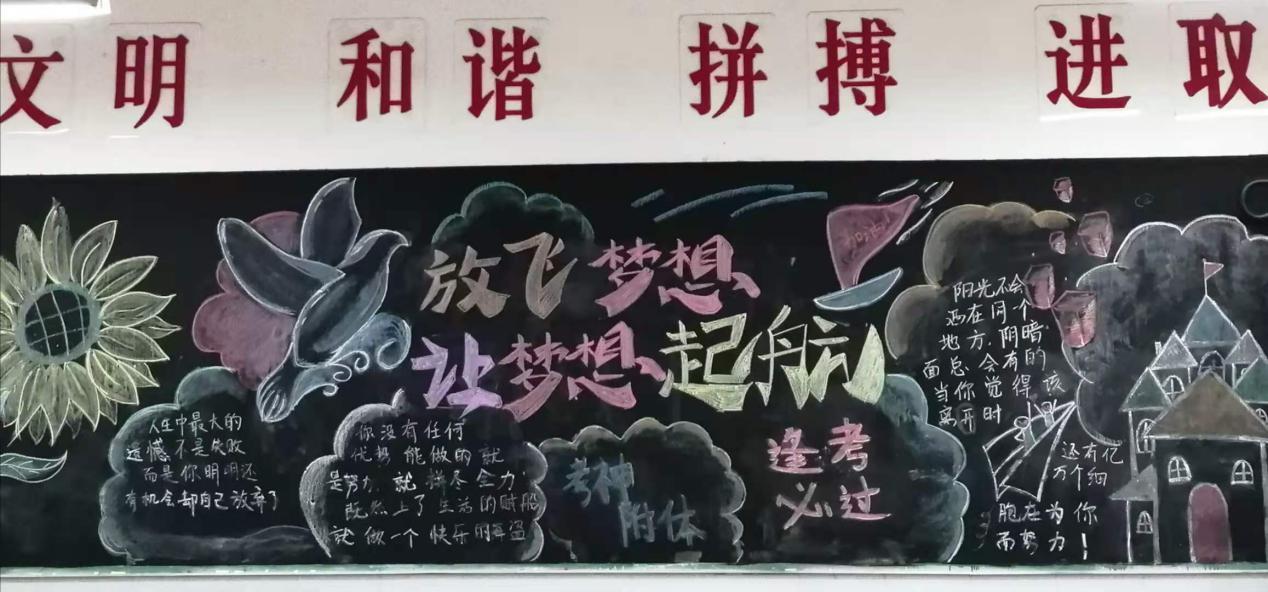 文明 和谐 拼搏 进取
放飞梦想
让梦想起航
加油
人生中最大的
遗憾不是失败
而是你明明还
有机会却自己放弃了
你没有任何
优势能做的就
是努力，就拼尽全力
既然上了生活的贼船
就做一个快乐的海盗
考神
附体
逢考
必过
阳光不会
洒在同一个
地方，阴暗
面总会有的
当你觉得该
离开时
还有亿
万个细
胞在为你
而努力！